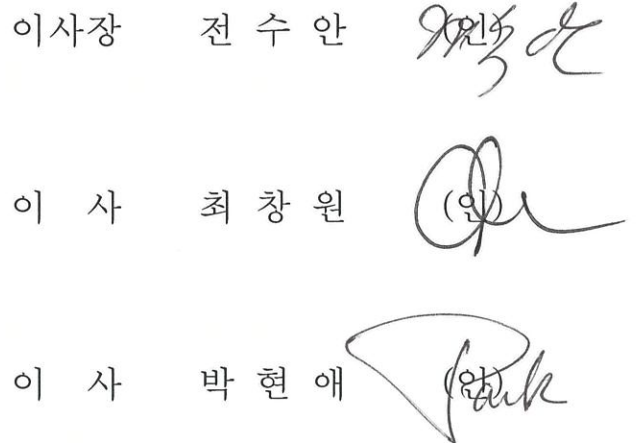 이사장 전 수 안 (인)
이 사 최 창 원 (인)
이 사 박 현 애 (인) Park